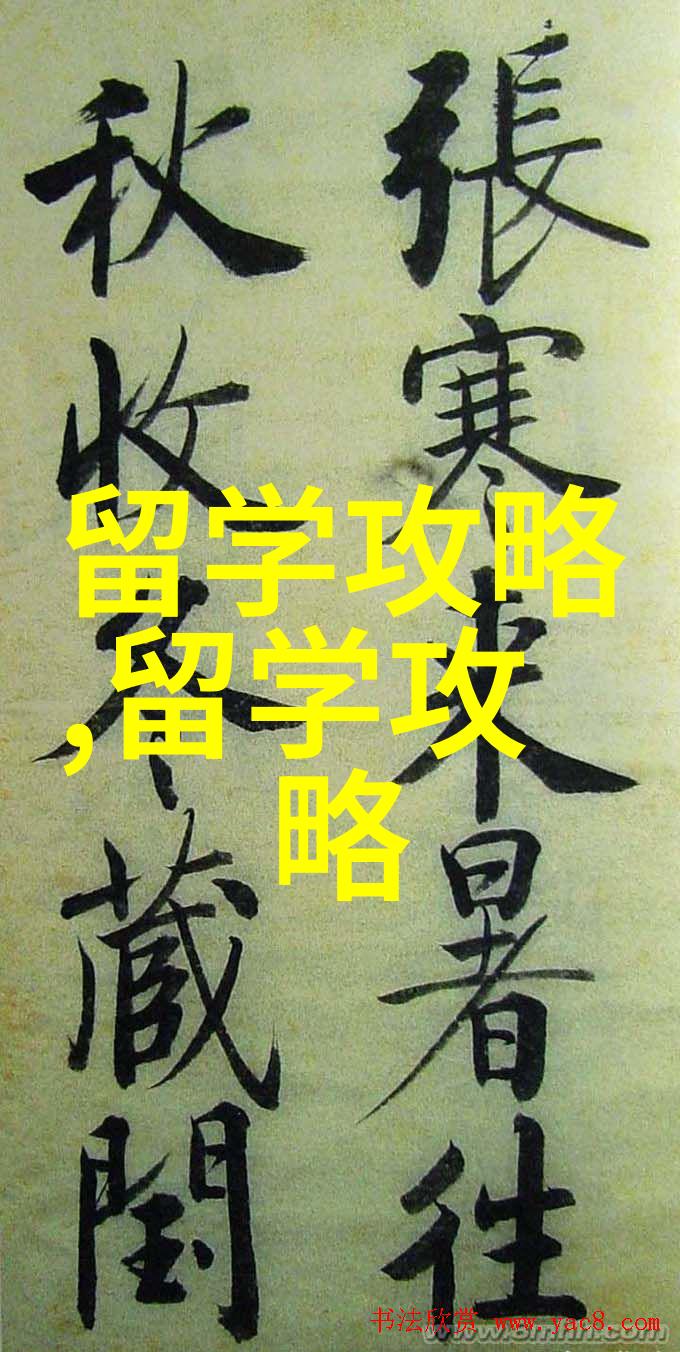 張寒来暑往
秋收冬蔵閏
留学攻略
,留学攻
略
书法欣赏 www.yac8.com